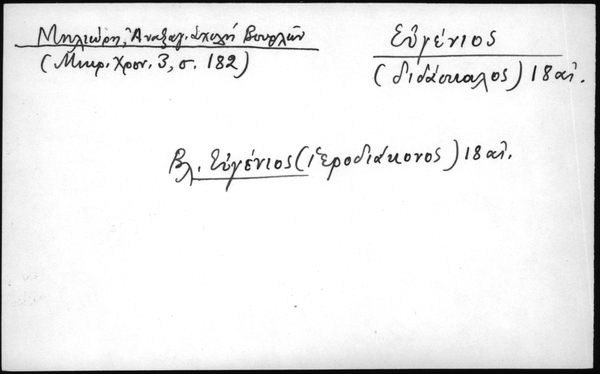 Μηλιώρη, Ἀναξαγ. σχολή Βουρλῶν
(Μικρ. Χρον. 3, σ. 182)
Εὐγένιος
(διδάσκαλος) 18 αἰ.
Βλ. Εὐγένιος (ἱεροδιάκονος) 18 αἰ.